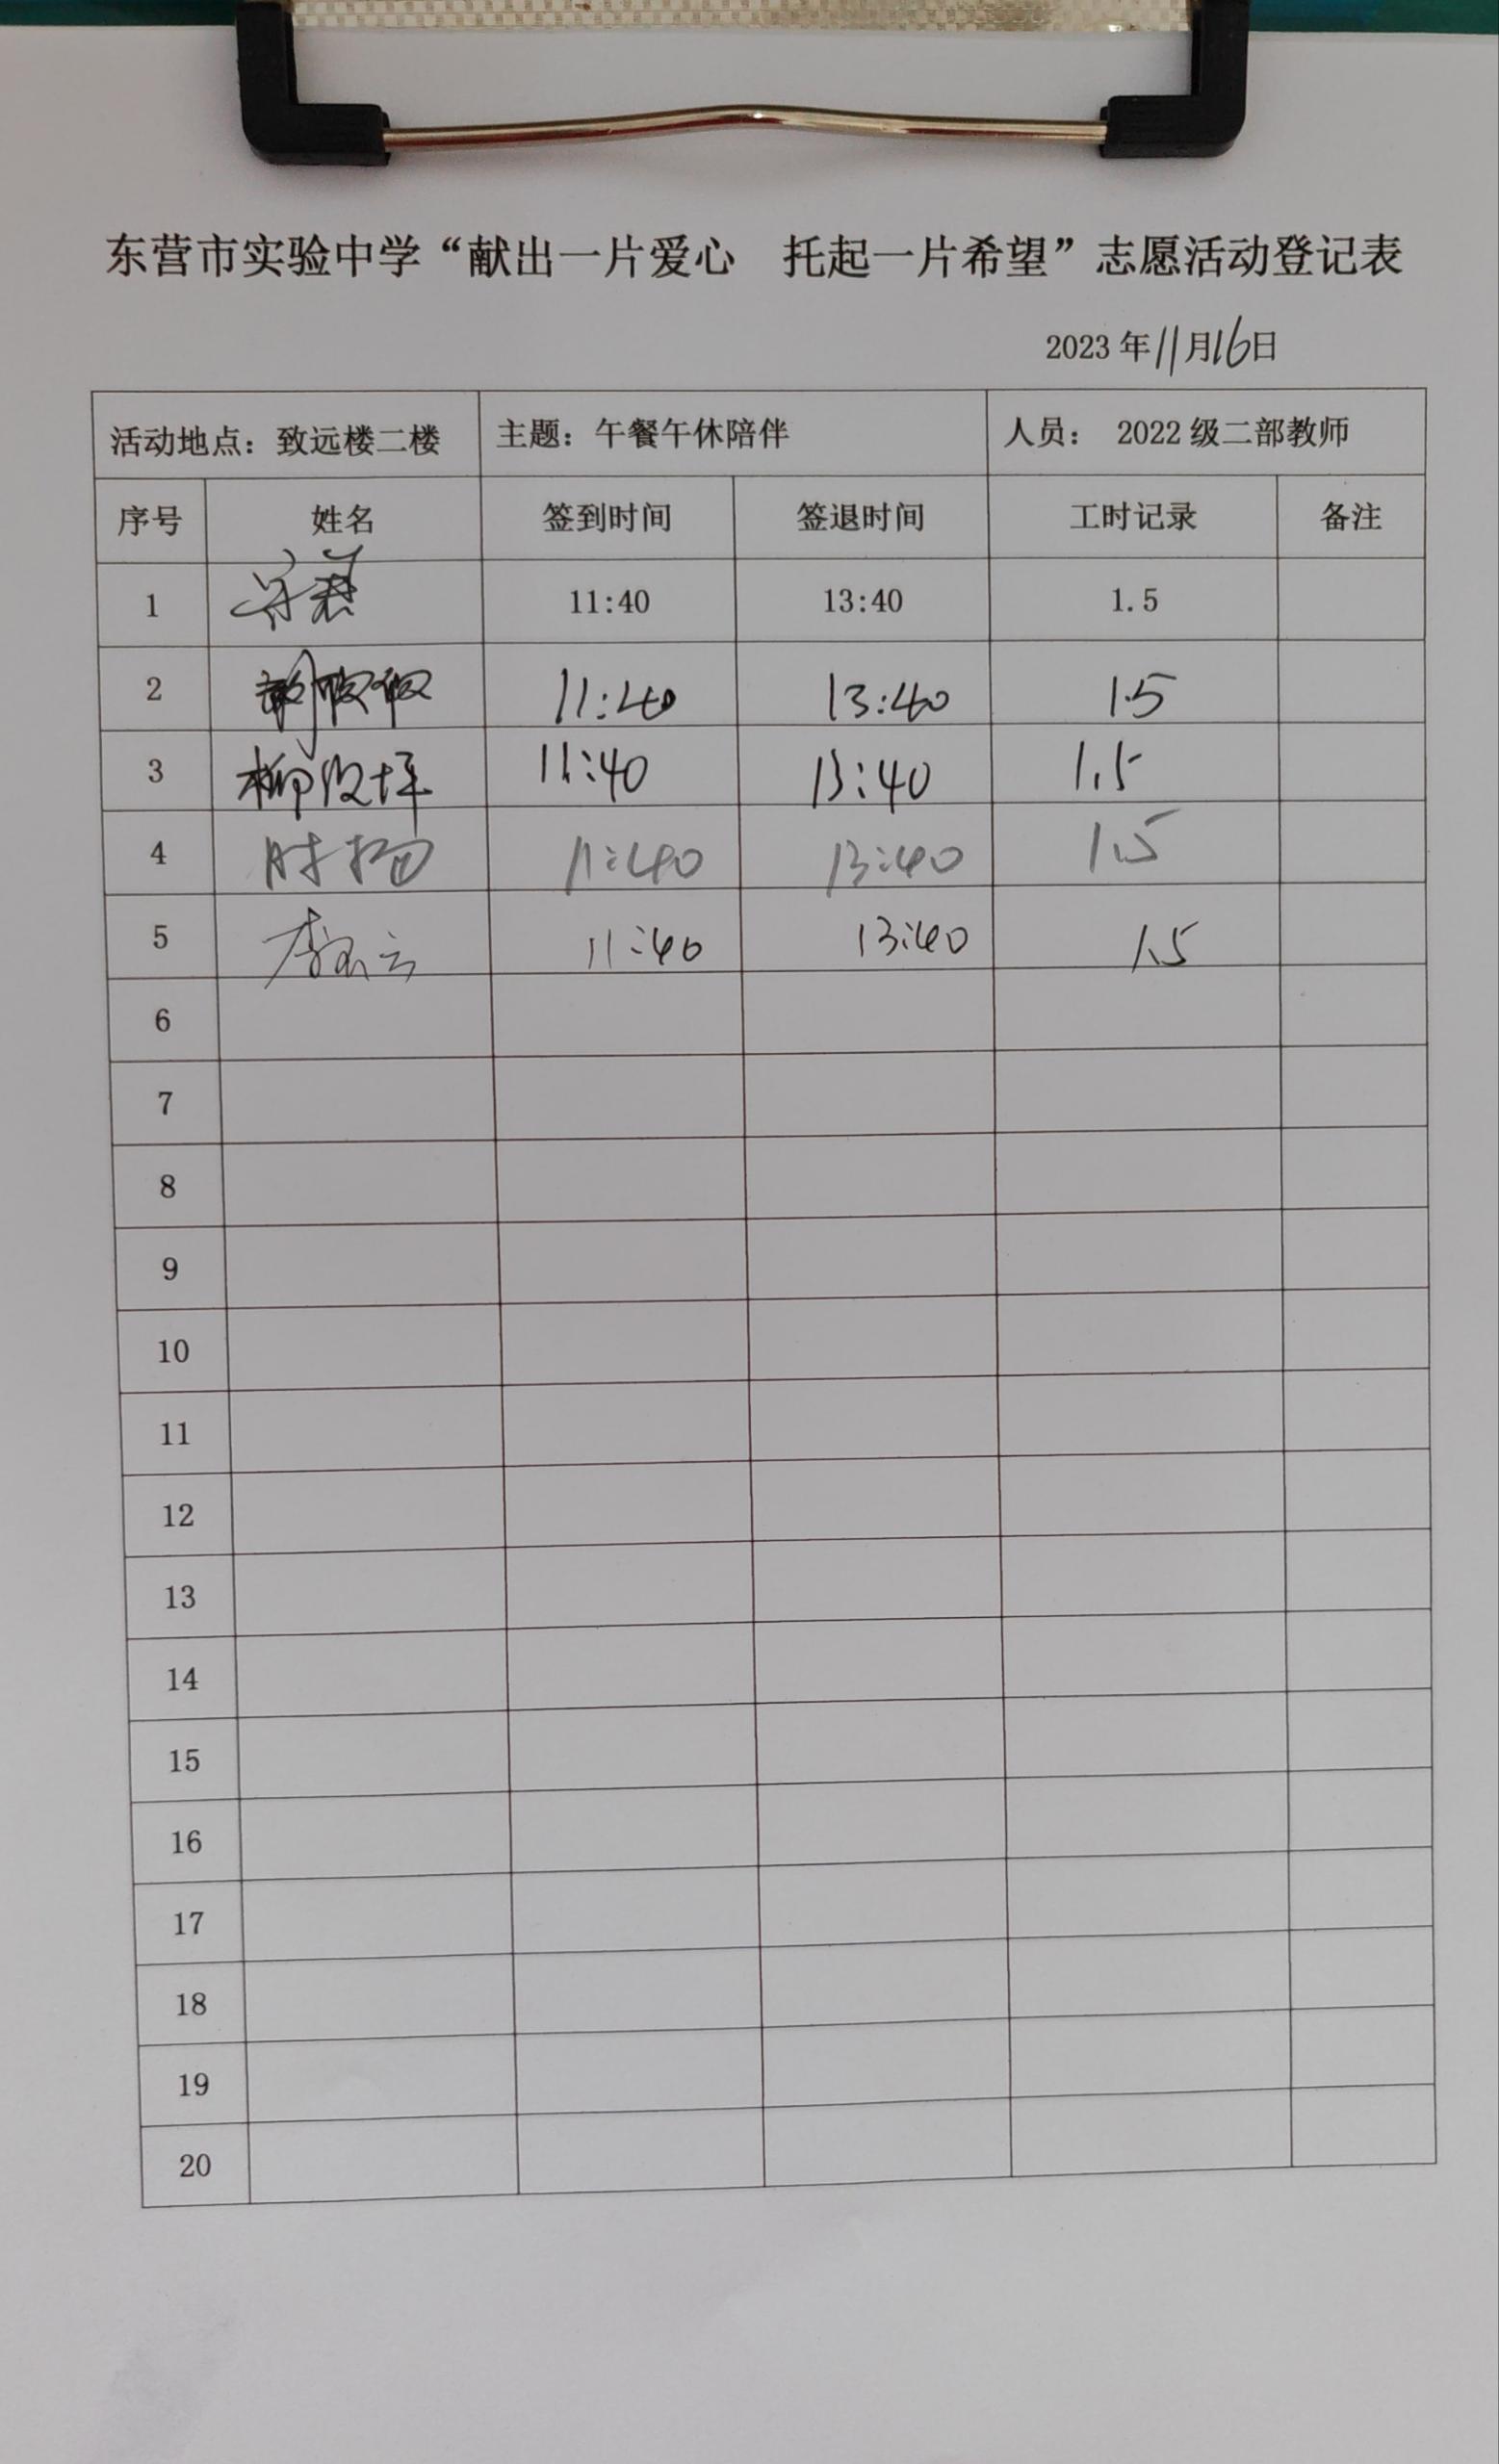 东营市实验中学“献出一片爱心 托起一片希望”志愿活动登记表
2023年11月16日
活动地点：致远楼二楼 主题：午餐午休陪伴 人员： 2022级二部教师
序号 姓名 签到时间 签退时间 工时记录 备注
1 11:40 13:40 1.5
2 11:40 13:40 1.5
3 柳 坪 11:40 13:40 1.5
4 时扬 11:40 13:40 1.5
5 李 云 11:40 13:40 1.5
6
7
8
9
10
11
12
13
14
15
16
17
18
19
20